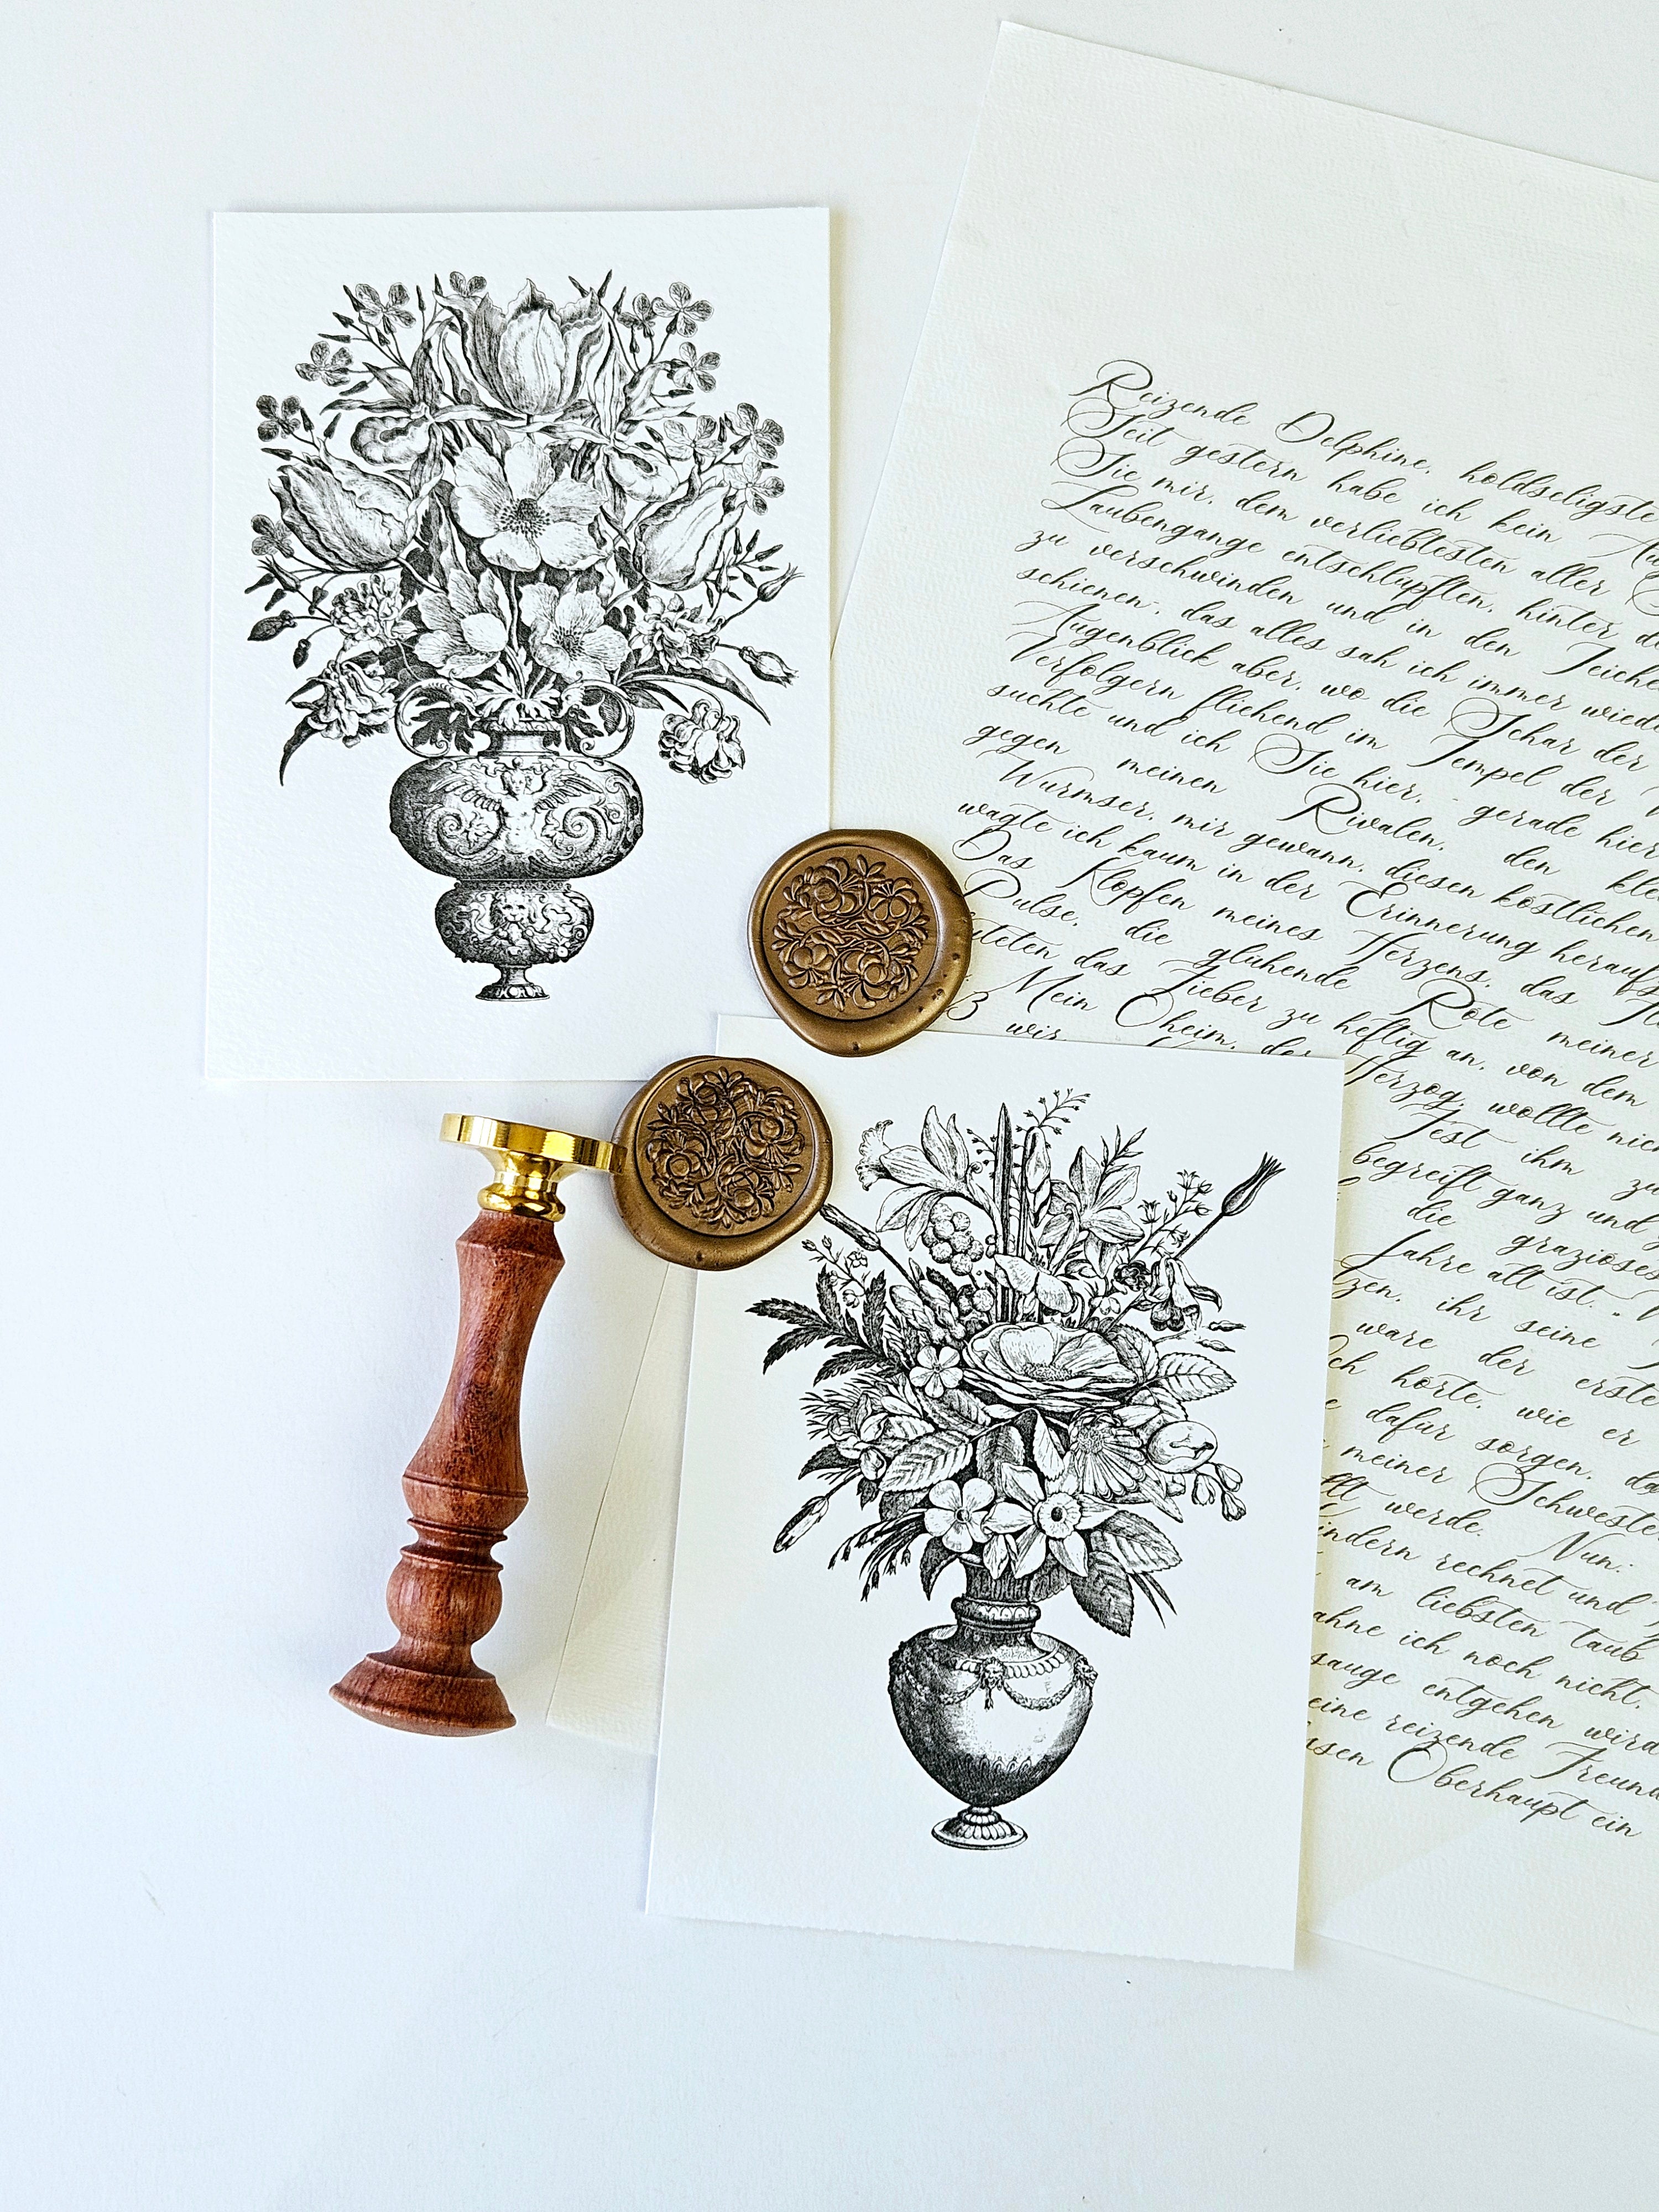 Reizende Delphine, holdseligste
Seit gestern habe ich kein Au
Sie mir, dem verliebtesten aller
Laubengange entschlupften, hinter d
zu verschwinden und in den Teiche
schienen, das alles sah ich immer wied
Augenblick aber, wo die Schar der
Verfolgern fliehend im Tempel der
suchte und ich Sie hier, - gerade hier
gegen meinen Rivalen, den kle
Wurmser, mir gewann, diesen kostlichen
wagte ich kaum in der Erinnerung herauf
Das Klopfen meines Herzens, das
Pulse, die gluhende Rote meiner
uteten das Fieber zu heftig an, von dem
Mein Oheim, der Herzog, wollte nich
wir Fest ihm zu
begreift ganz und
die grazioses
Jahre alt ist. -
zen, ihr seine
ware der erste
ch horte, wie er
dafur sorgen, da
meiner Schwester
llt werde. Nun:
indern rechnet und
am liebsten taub
ahne ich noch nicht,
sauge entgehen wird
eine reizende Freund
ssen Oberhaupt ein